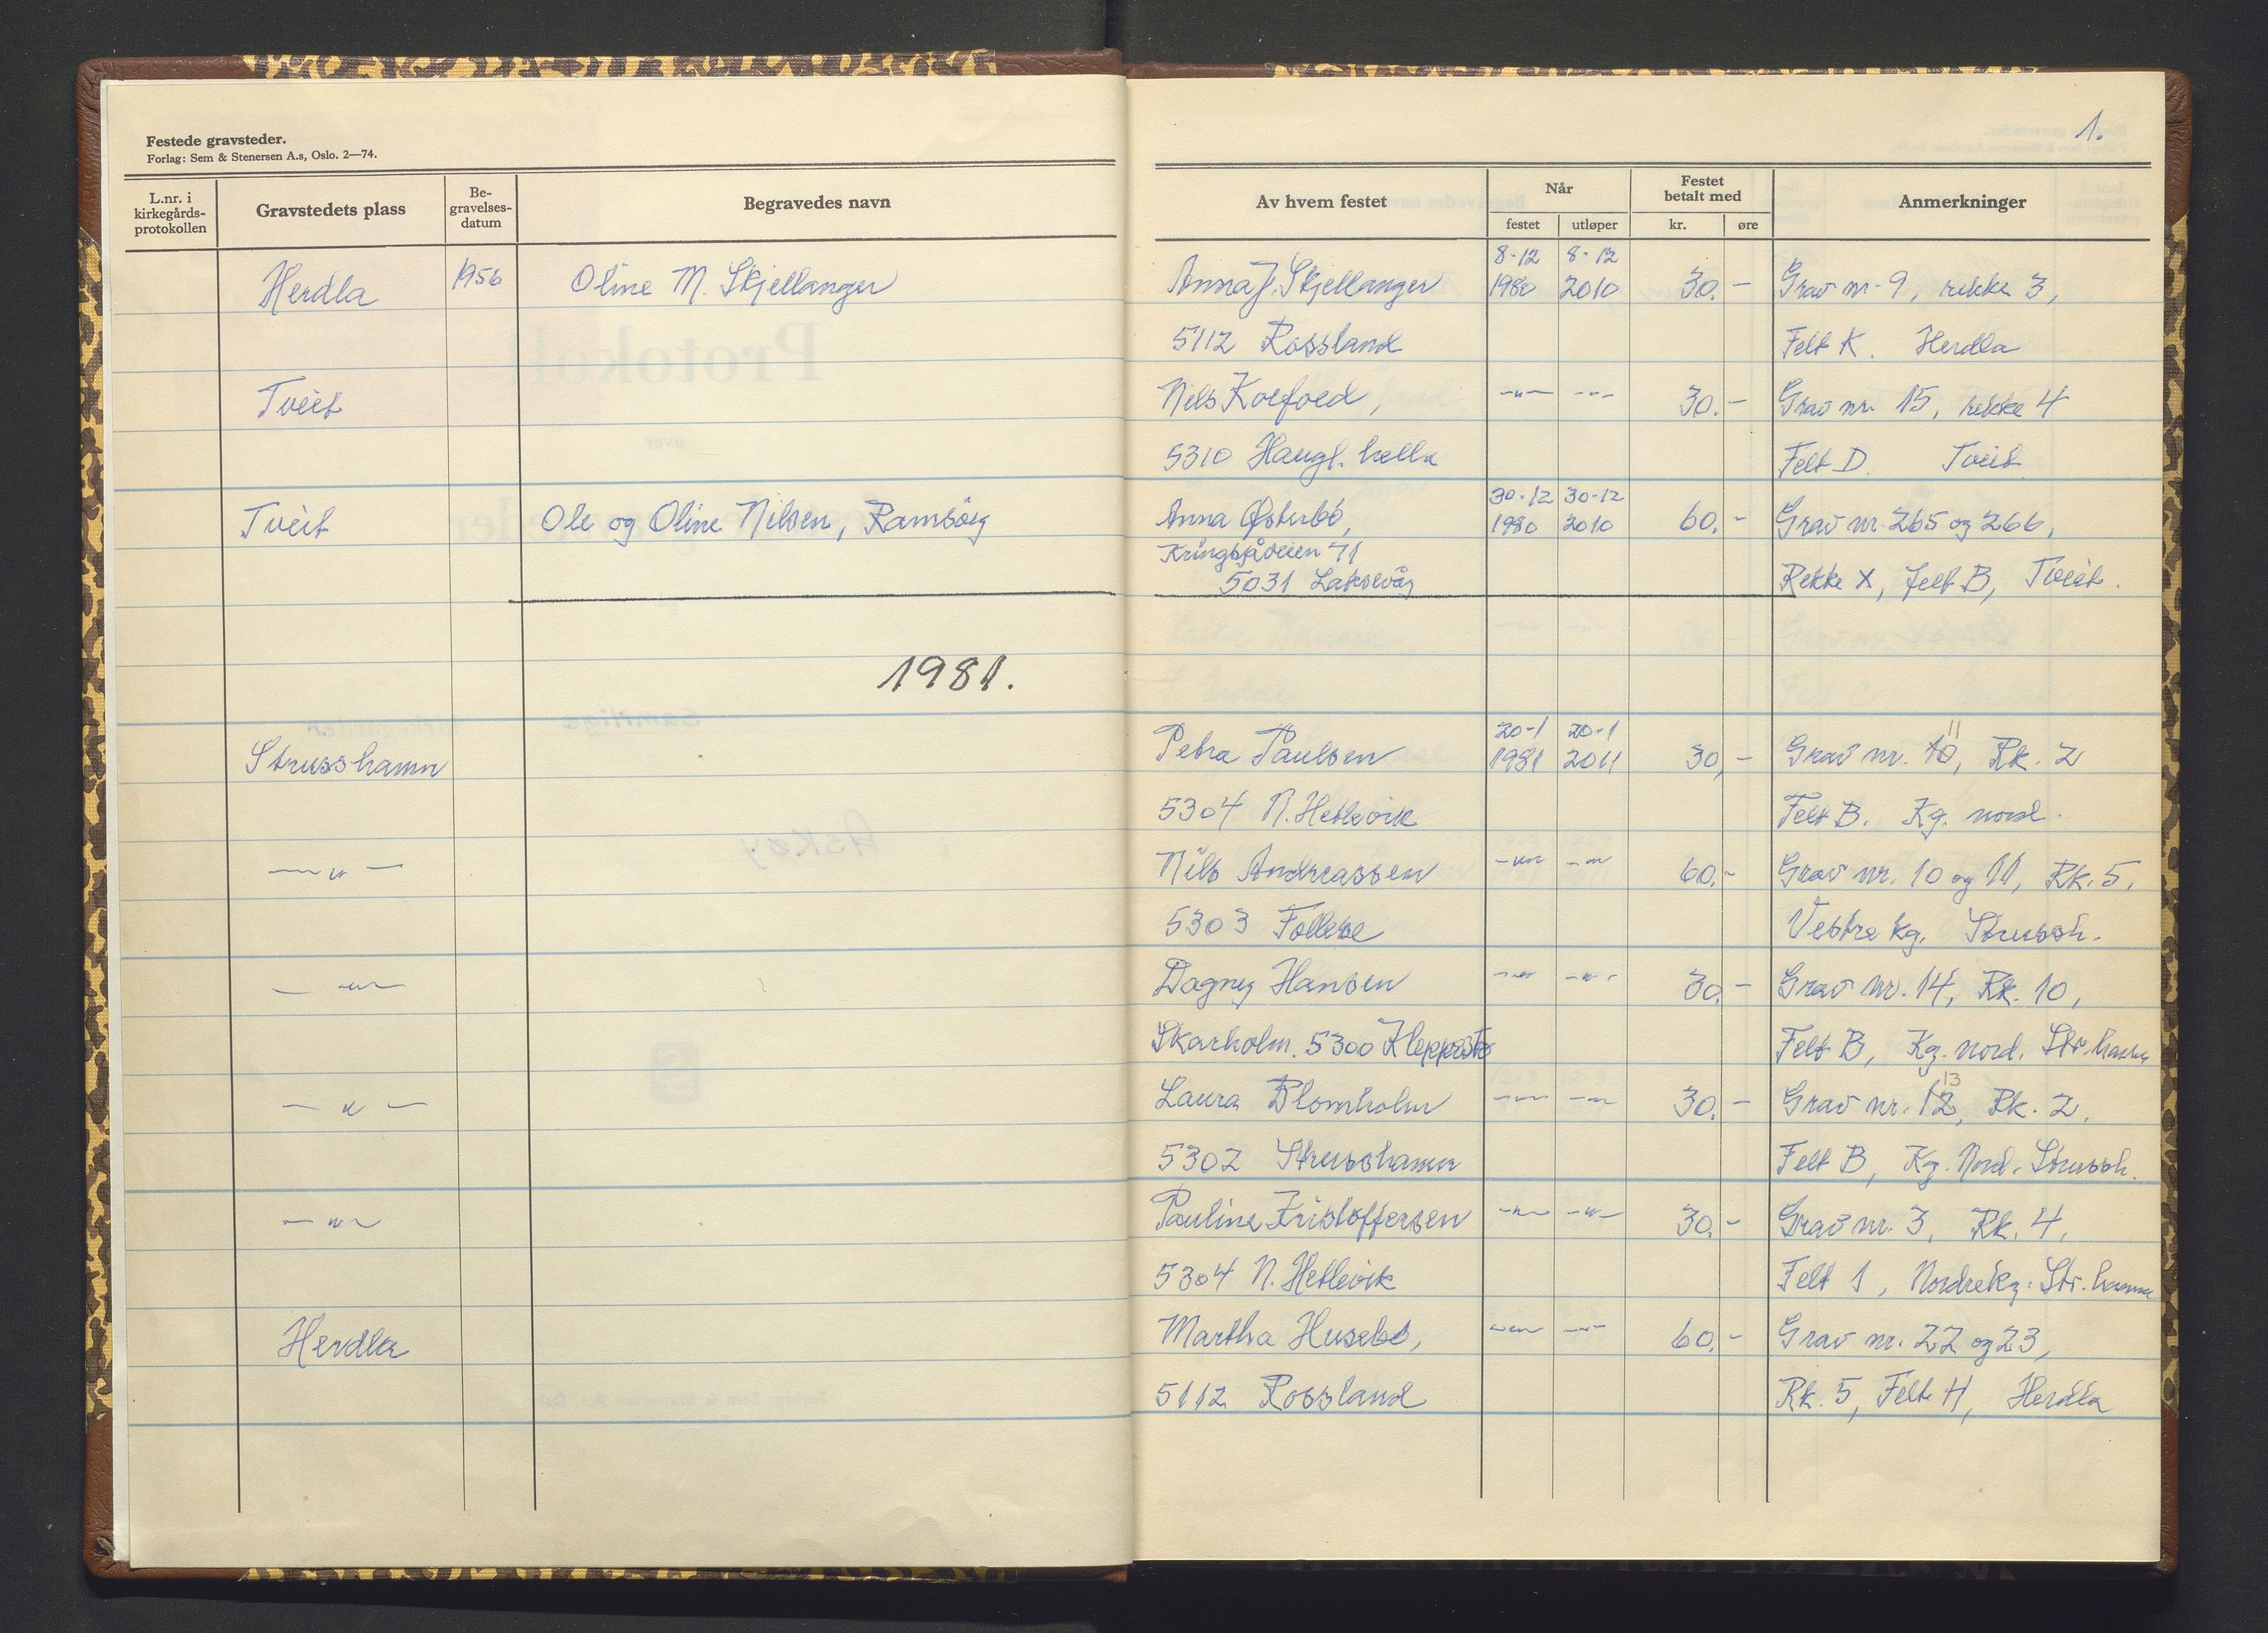 Festede gravsteder.
Forlag: Sem & Stenersen A.s, Oslo. 2—74.
L.nr. i kirkegårds-protokollen
Gravstedets plass
Be-gravelses-datum
Begravedes navn
Herdla 1956 Oline M. Skjellanger
Tveit
Tveit Ole og Oline Nilsen, Ramsöy
1981.
Strusshamn
—〃—
—〃—
—〃—
—〃—
Herdla
1.
Av hvem festet
Når
festet utløper
Festet betalt med
kr. øre
Anmerkninger
8-12 8-12
Anna J. Skjellanger 1980 2010 30.- Grav nr. 9, rekke 3,
5112 Rossland Felt K. Herdla
Nils Koefoed, —〃— —〃— 30.- Grav nr. 15, rekke 4
5310 Haugl.hella Felt D. Tveit
30-12 30-12
Anna Østerbö, 1980 2010 60.- Grav nr. 265 og 266,
Kringsjåveien 71
5031 Laksevåg Rekke X, felt B, Tveit.
20-1 20-1 11
Petra Paulsen 1981 2011 30,- Grav nr. 10, Rk. 2
5304 N. Hetlevik Felt B. Kg. nord.
Nils Andreassen —〃— —〃— 60.- Grav nr. 10 og 11, Rk. 5.
5303 Follese Vestre kg. Strussh.
Dagny Hansen —〃— —〃— 30.- Grav nr. 14, Rk. 10,
Skarholm. 5300 Kleppestø Felt B, Kg. nord. Str.hamn
13
Laura Blomholm —〃— —〃— 30.- Grav nr. 12, Rk. 2.
5302 Strusshamn Felt B, Kg. Nord. Strussh.
Pauline Kristoffersen —〃— —〃— 30.- Grav nr. 3, Rk. 4.
5304 N. Hetlevik Felt 1, Nordre kg. Str.hamn
Martha Husebö, —〃— —〃— 60.- Grav nr. 22 og 23,
5112 Rossland Rk. 5, Felt H, Herdla